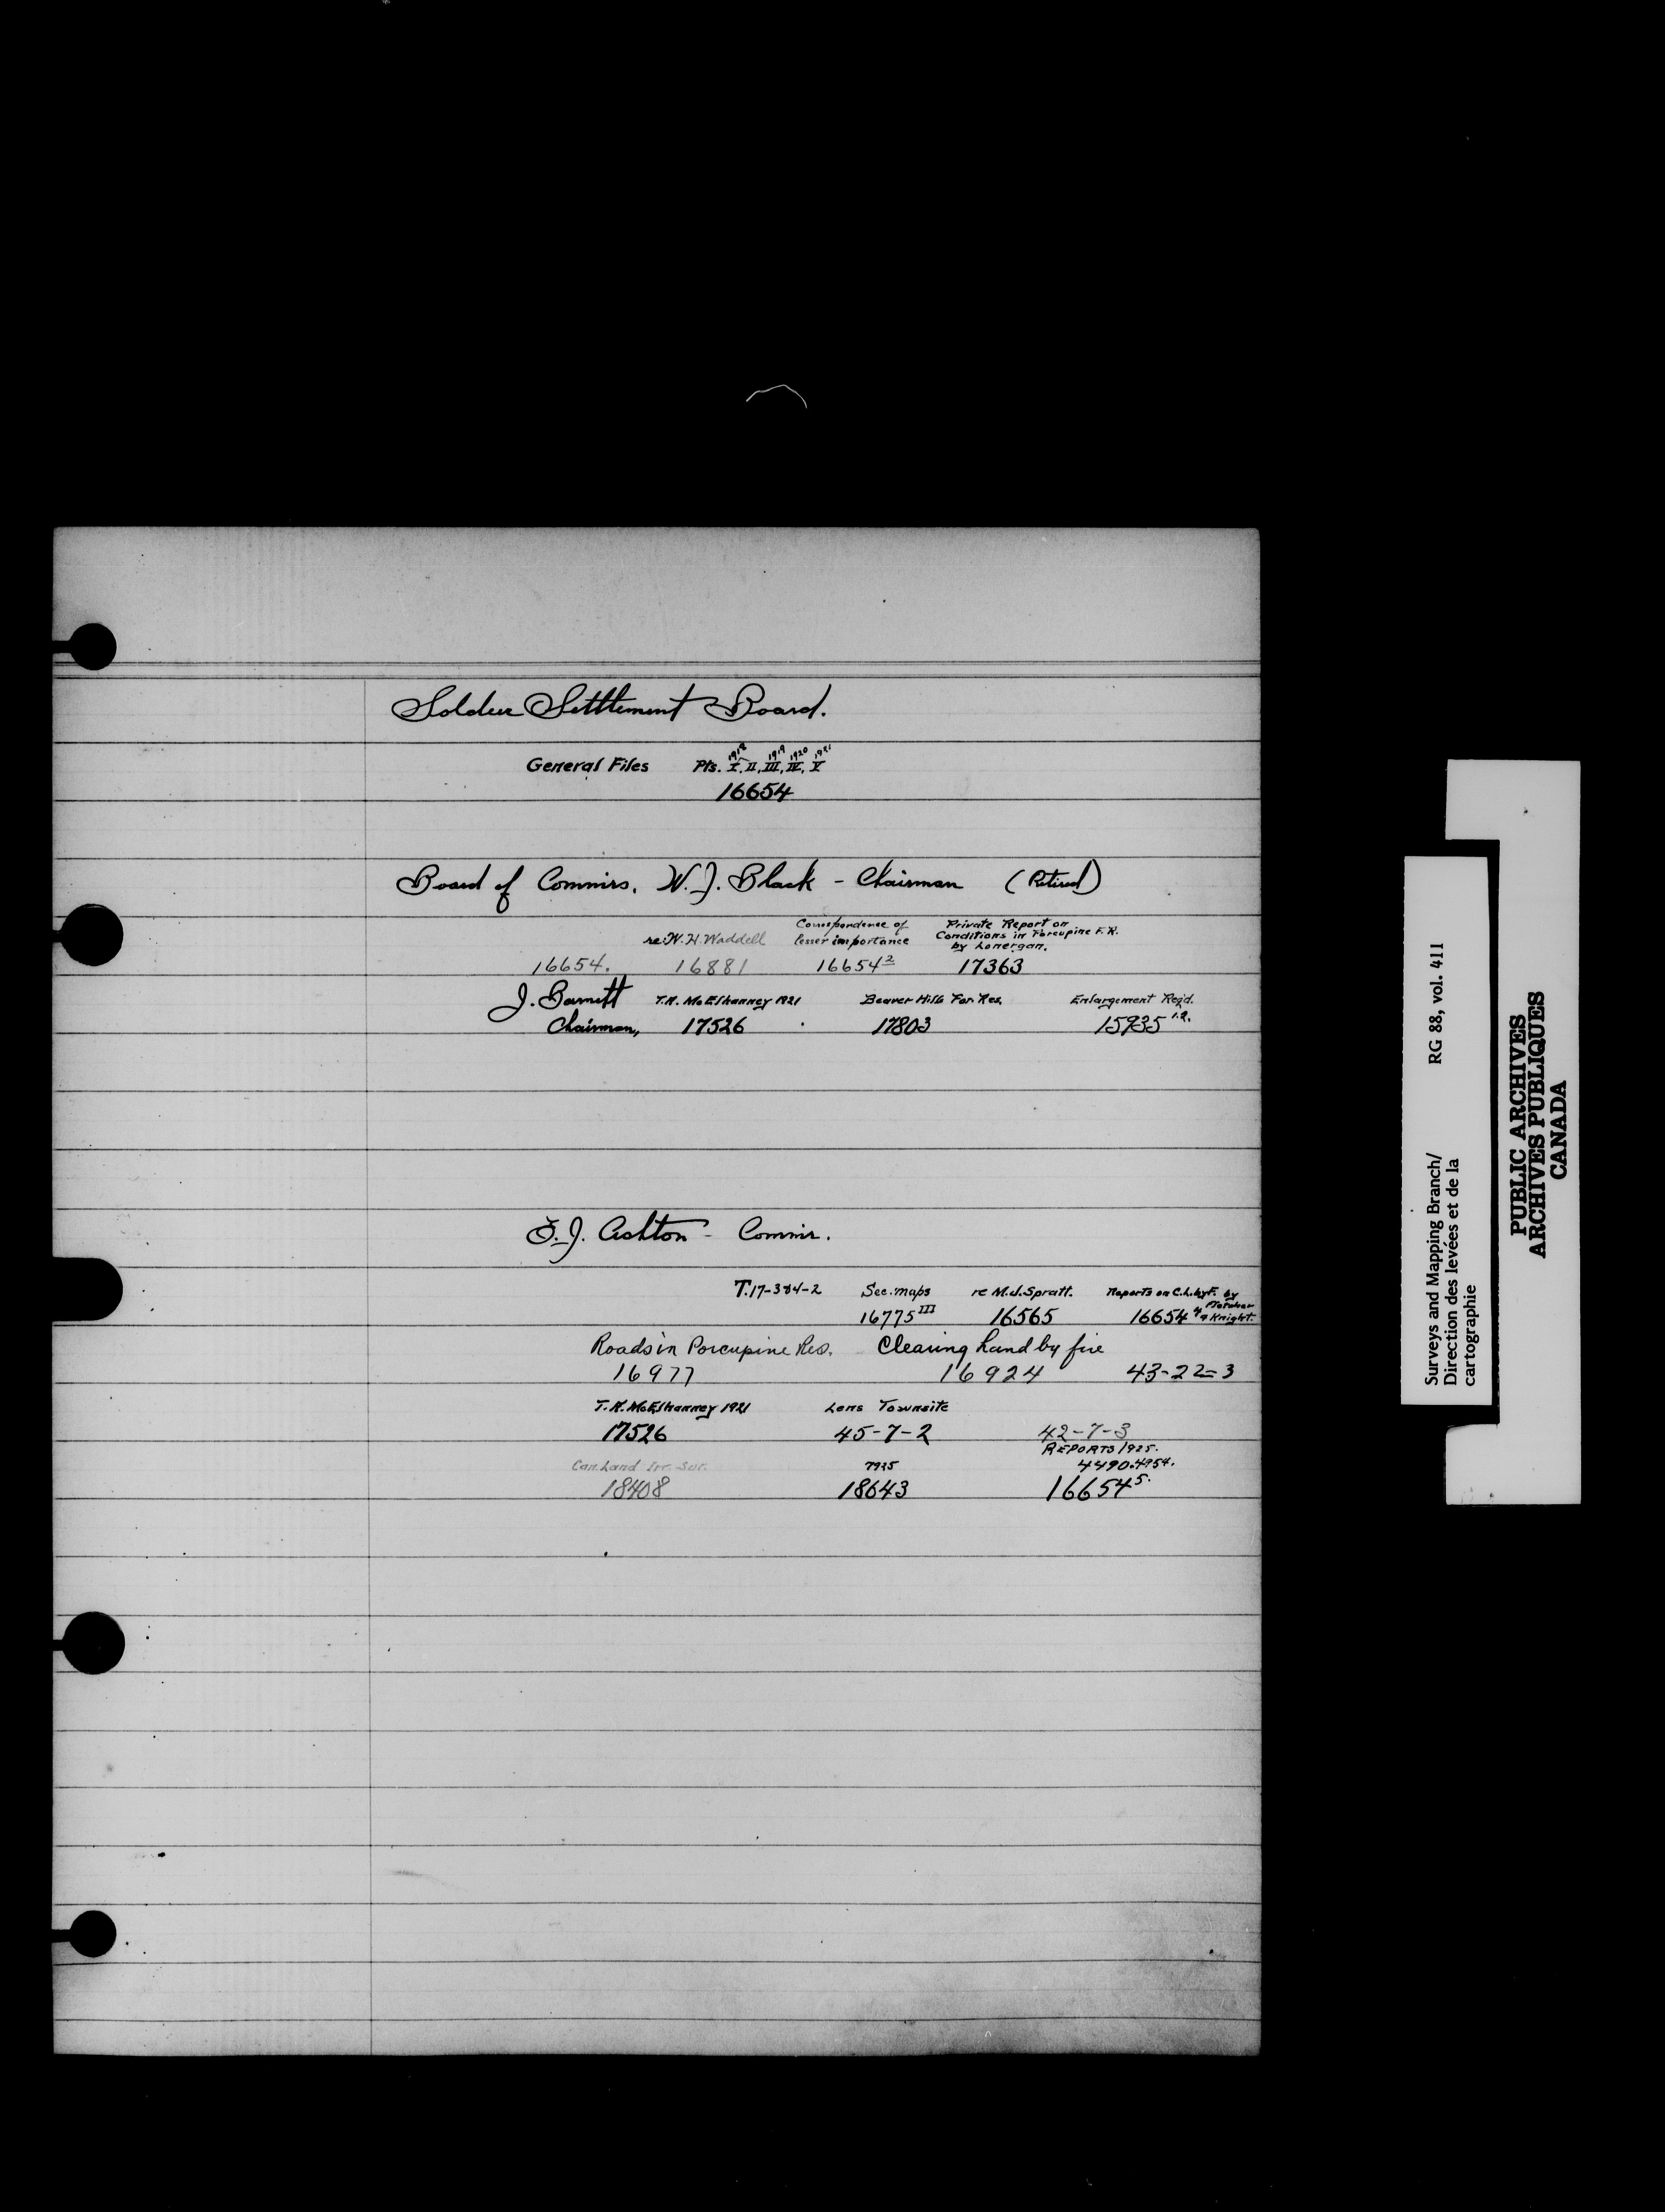 Soldier Settlement Board.
1918 1919 1920 1921
General Files Pts. I, II, III, IV, V
16654
Board of Commirs. W. J. Black - Chairman (Retired)
re W. H. Waddell Correspondence of lesser importance Private Report on Conditions in Porcupine F.R. by Lonergan.
16654. 16881 16654² 17363
J. Barnett T.K. McElhanney 1921 Beaver Hills For. Res. Enlargement Req'd.
Chairman, 17526 17803 15935 1.2.
E. J. Ashton - Commir.
T.17-384-2 Sec. maps re M.J. Spratt. Reports on C.L. by F. by
16775 III 16565 16654 4 & Knight.
Roads in Porcupine Res. Clearing Land by fire
16977 16924 43-22=3
T.K. McElhanney 1921 Lens Townsite
17526 45-7-2 42-7-3
REPORTS 1925.
Can. Land Irr. Sur. 7935 4490.4954.
18408 18643 16654 5.
Surveys and Mapping Branch/ RG 88, vol. 411
Direction des levées et de la
cartographie
PUBLIC ARCHIVES
ARCHIVES PUBLIQUES
CANADA